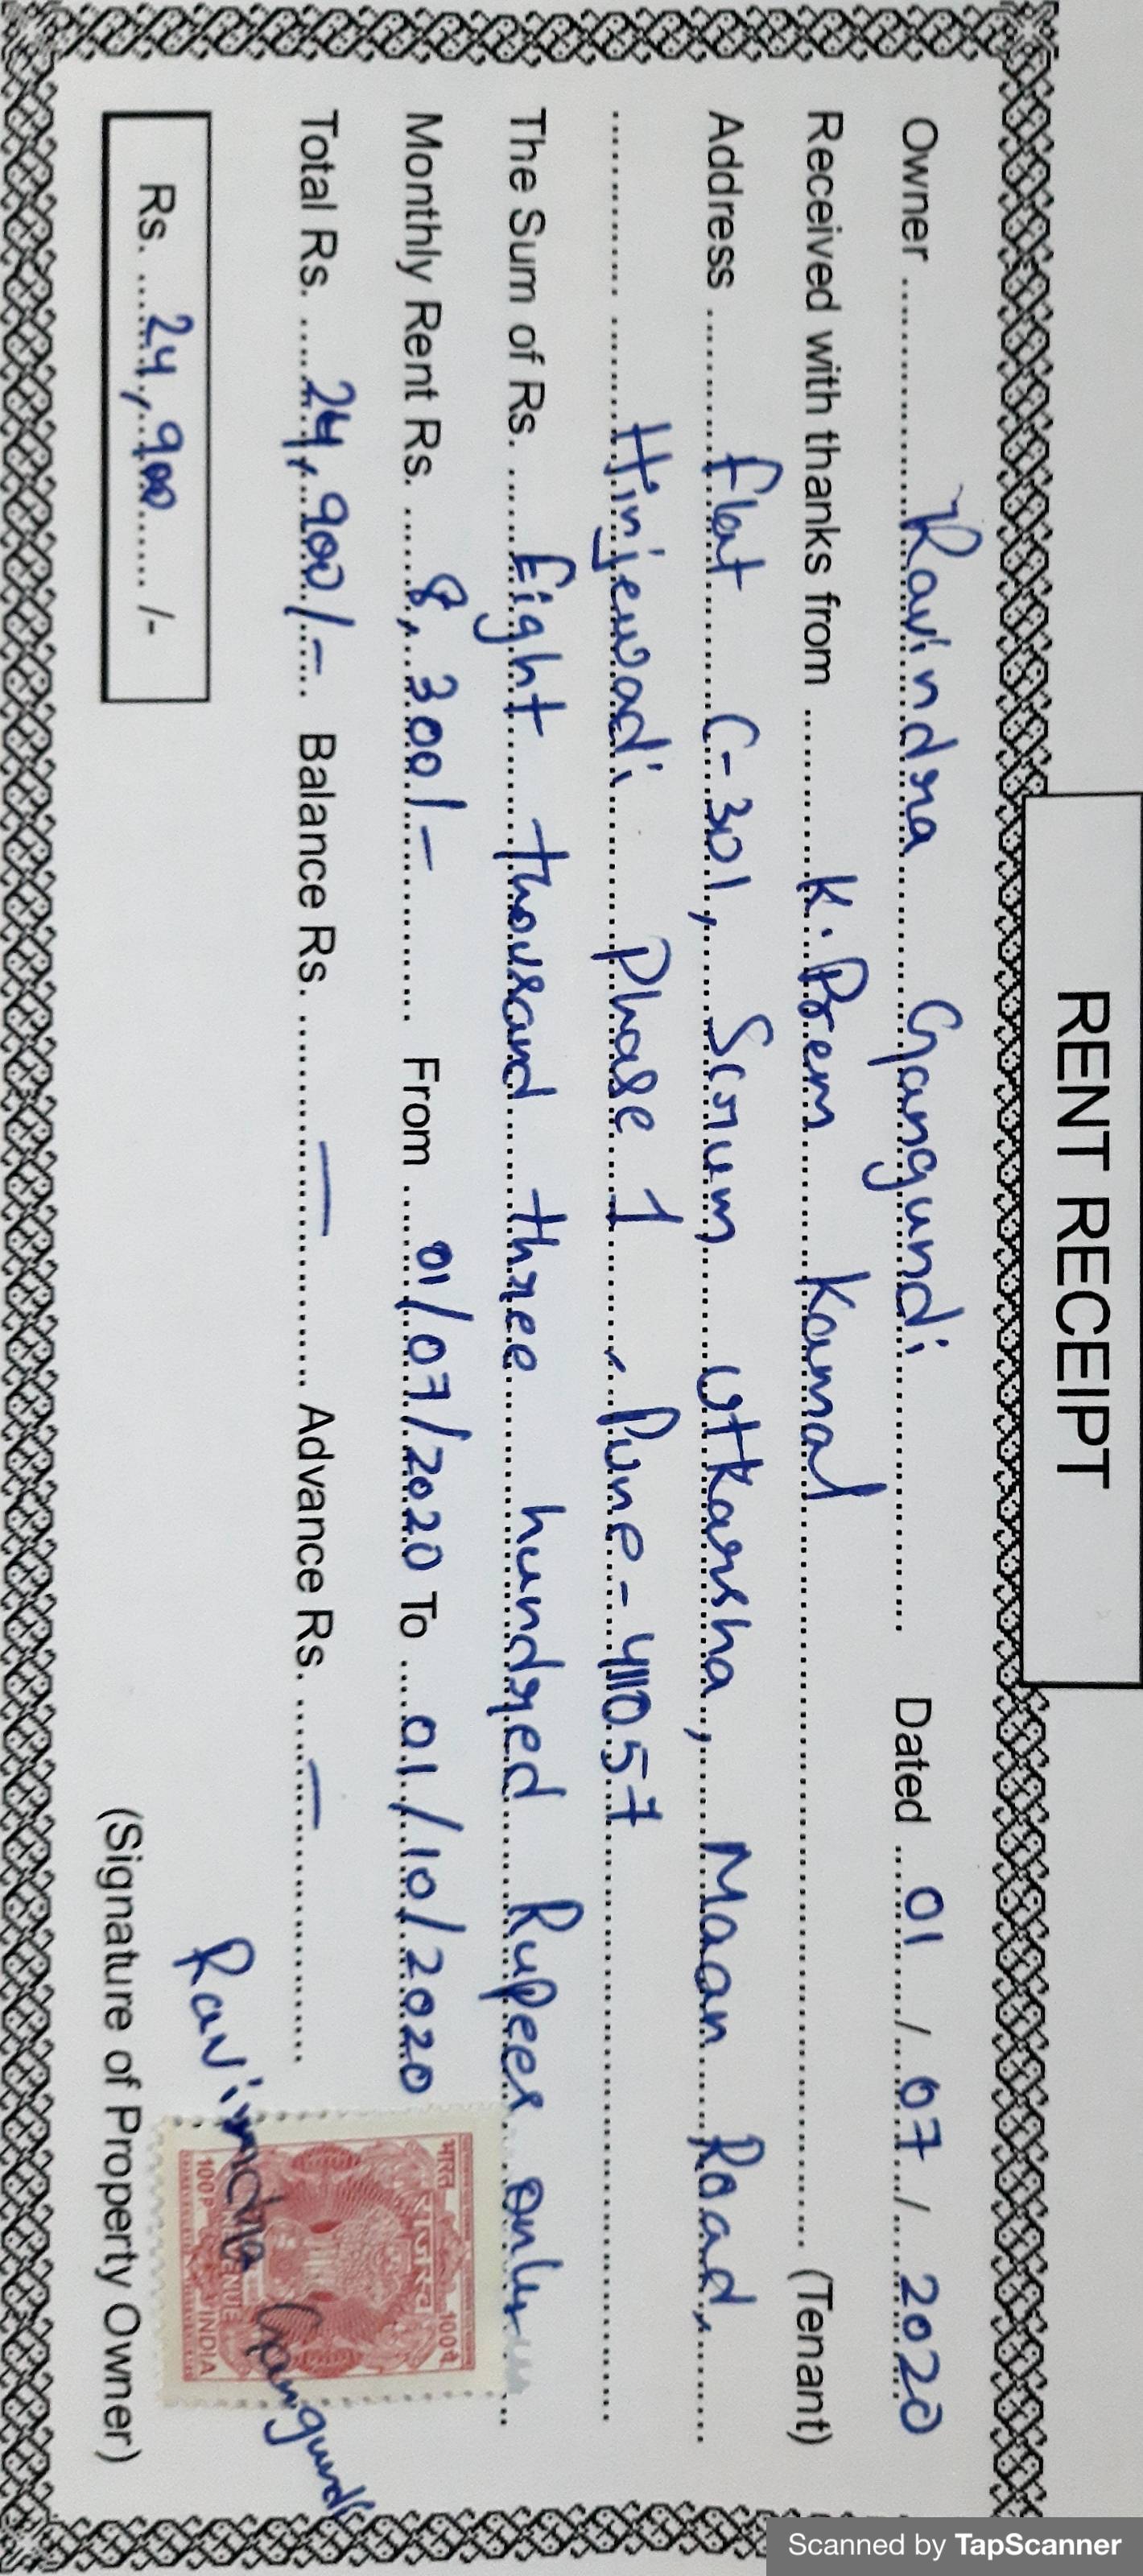 RENT RECEIPT
Owner Ravindra Gangundi Dated 01 / 07 / 2020
Received with thanks from K. Prem Kamal (Tenant)
Address Flat C-301, Scrum Utkarsha, Maan Road,
Hinjewadi Phase 1, Pune - 411057
The Sum of Rs. Eight thousand three hundred Rupees only
Monthly Rent Rs. 8,300/- From 01/07/2020 To 01/10/2020
Total Rs. 24,900/- Balance Rs. — Advance Rs. —
Rs. 24,900 /-
Ravindra Gangundi
भारत 100पै
REVENUE
100P INDIA
(Signature of Property Owner)
Scanned by TapScanner